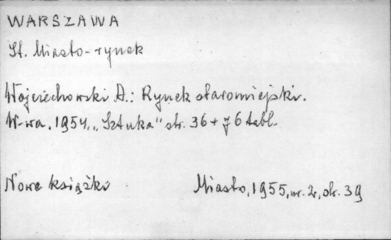 WARSZAWA
St. Miasto-rynek
Wojciechowski A.: Rynek staromiejski.
W-wa, 1954, "Sztuka" str. 36 + 76 tabl.
Nowe książki Miasto, 1955, nr. 2, str. 39